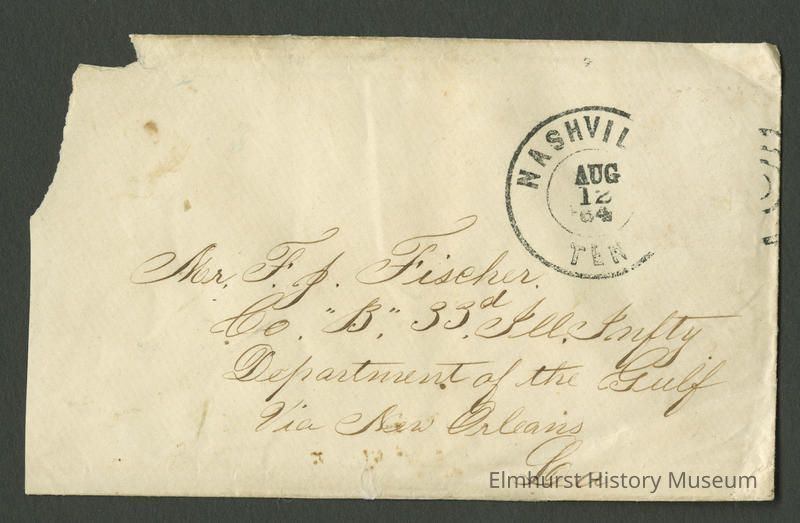 NASHVIL
AUG
12
'64
TEN
Mr. F. J. Fischer.
Co. "B", 33d Ill. Infty
Department of the Gulf
Via New Orleans
La
Elmhurst History Museum